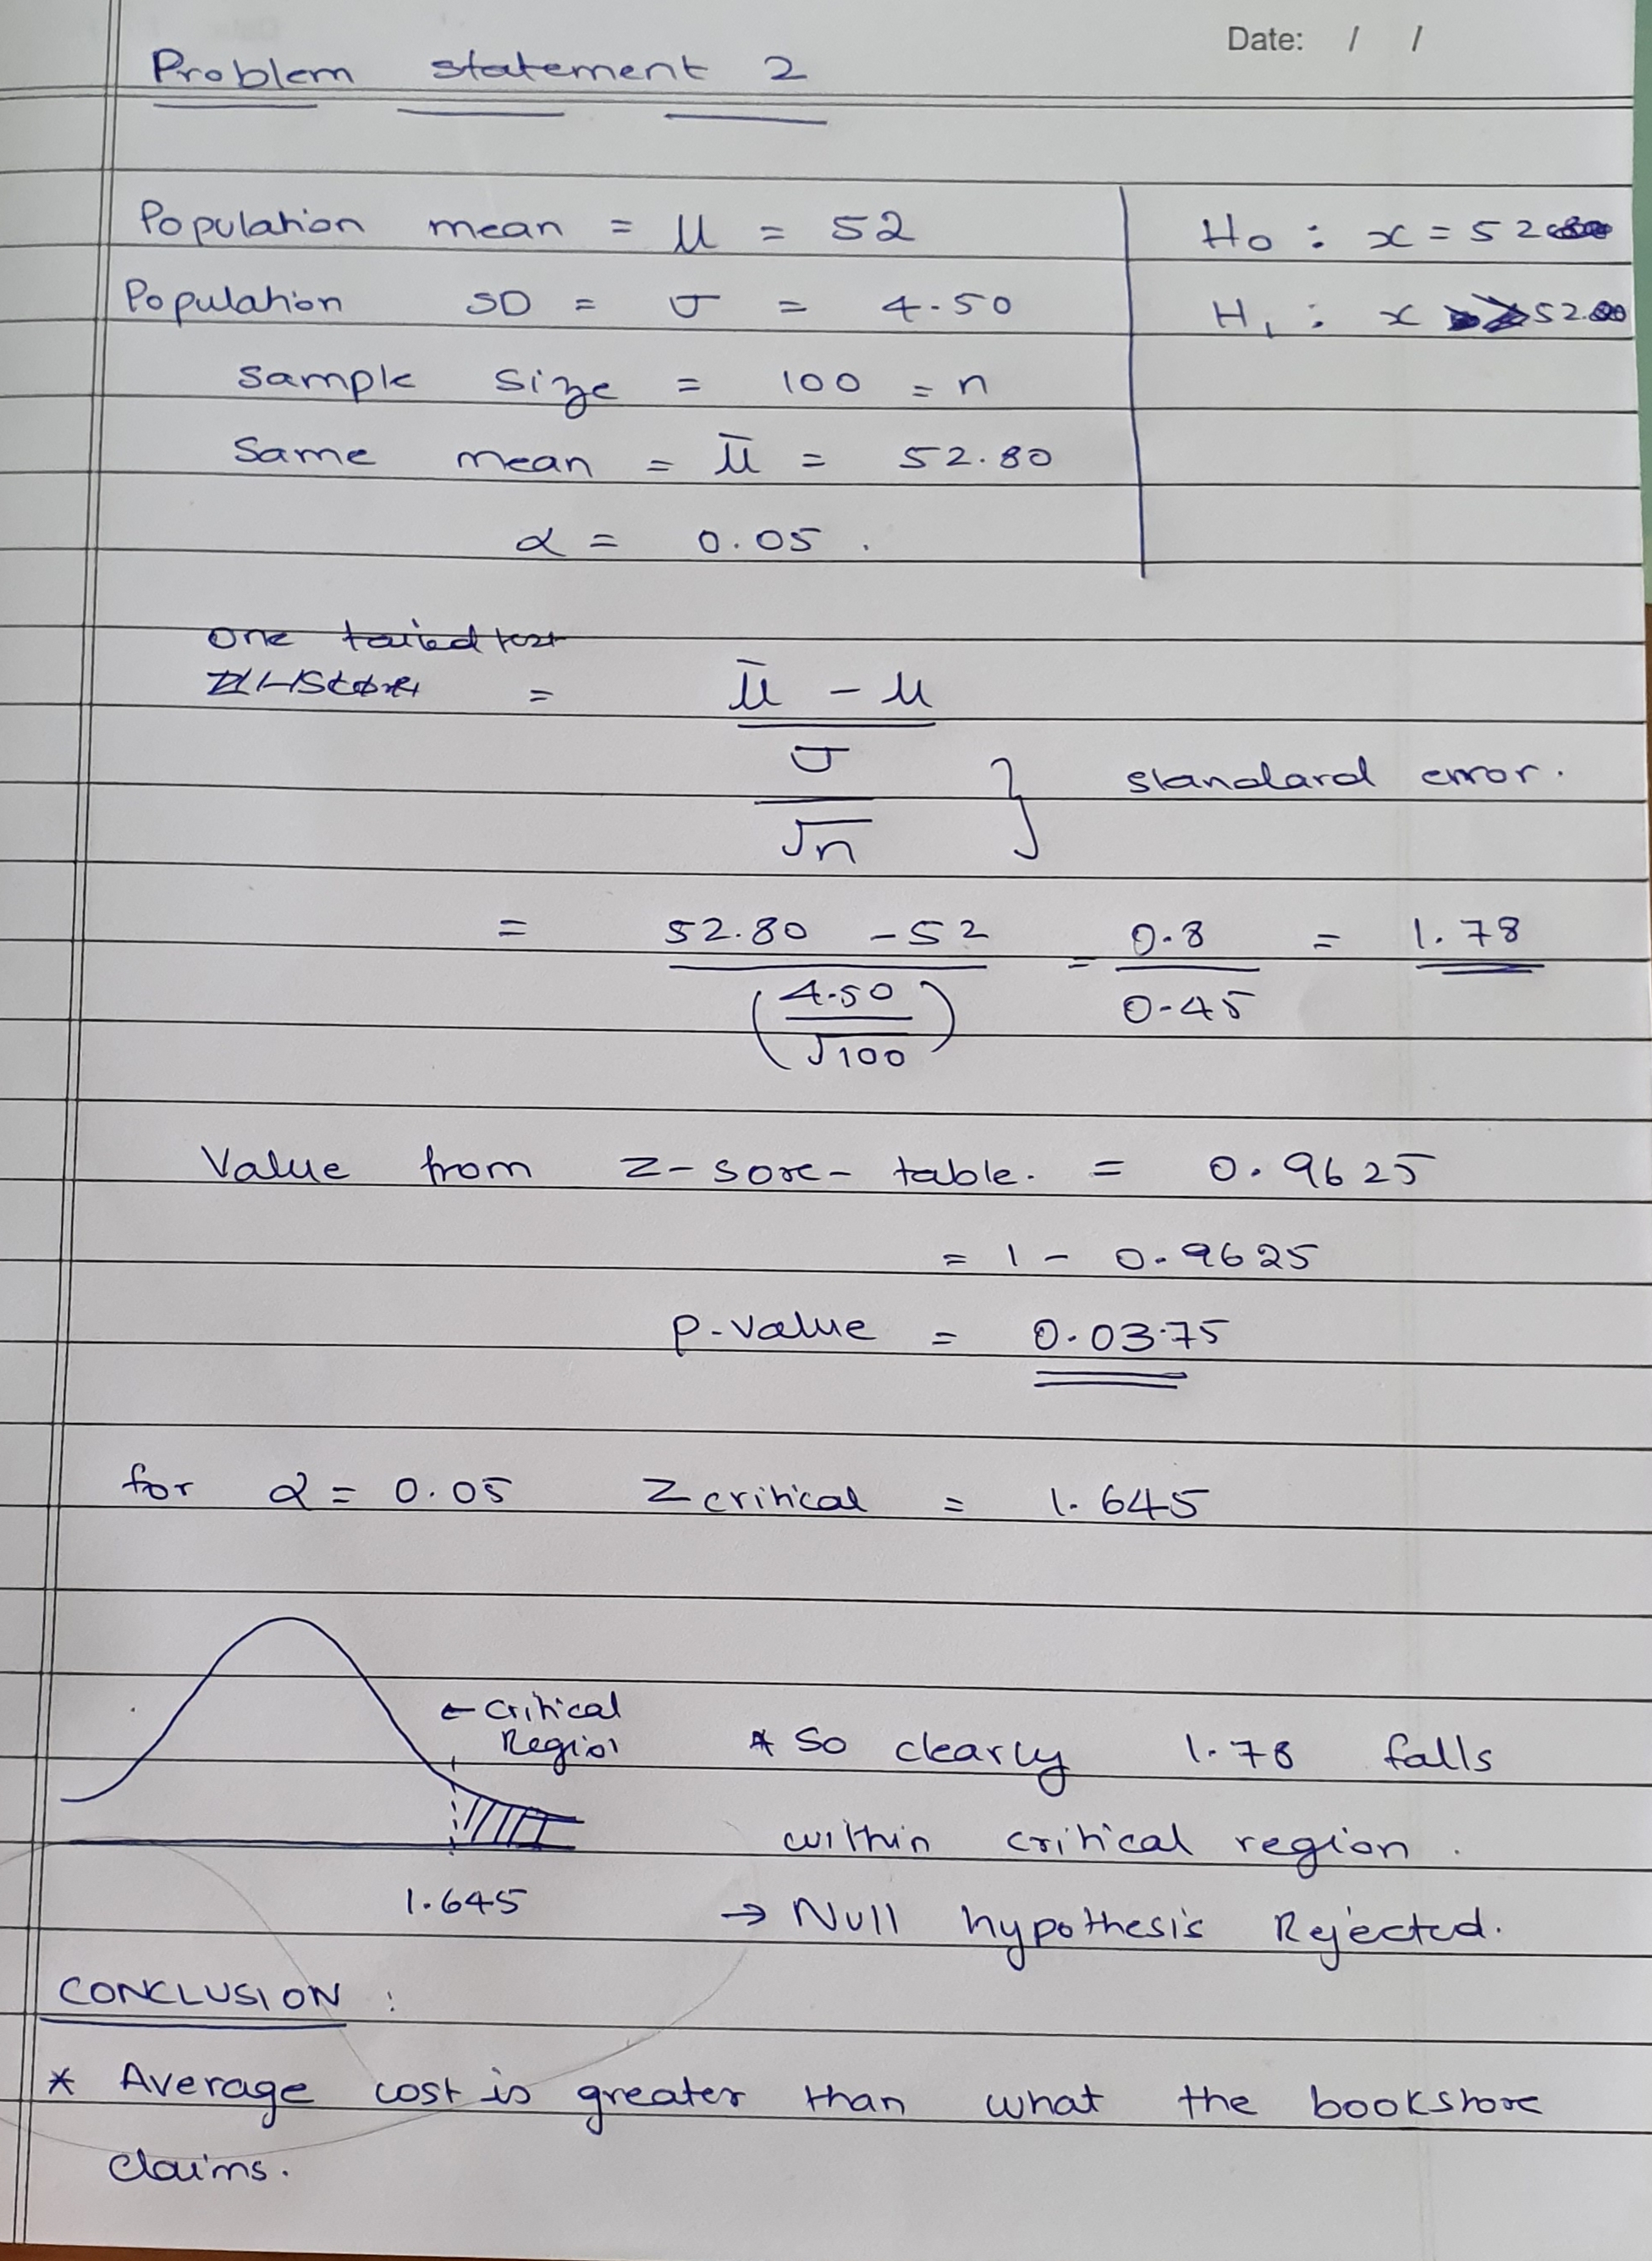 Date: / /
Problem statement 2
Population mean = μ = 52
H0 : x = 52
Population SD = σ = 4.50
H1 : x > 52.00
Sample size = 100 = n
Same mean = μ̄ = 52.80
α = 0.05 .
One tailed test
= μ̄ - μ
σ
√n
} standard error.
= 52.80 - 52 = 0.8 = 1.78
(4.50 / √100) 0.45
Value from z-sore-table. = 0.9625
= 1 - 0.9625
P-value = 0.0375
for α = 0.05 Z critical = 1.645
← Critical
Region
* So clearly 1.78 falls
within critical region .
1.645
→ Null hypothesis Rejected.
CONCLUSION :
* Average cost is greater than what the bookstore
claims.